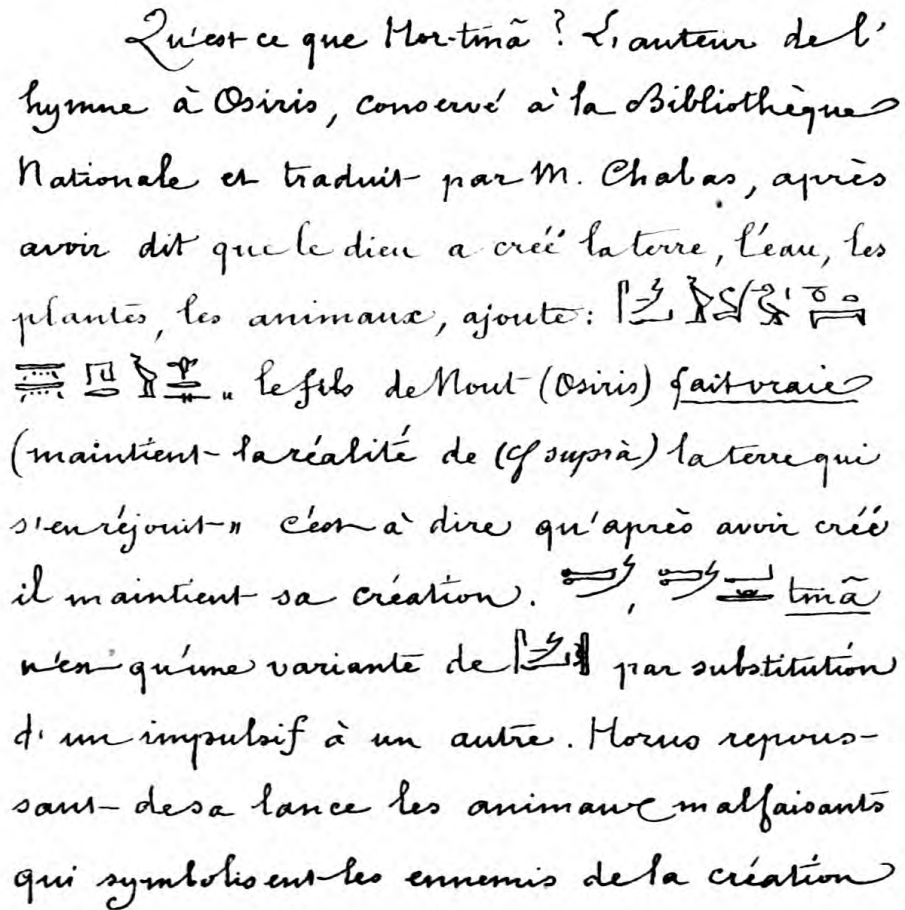 Qu'est ce que Hor-tmã? L'auteur de l'
hymne à Osiris, conservé à la Bibliothèque
Nationale et traduit par M. Chabas, après
avoir dit que le dieu a créé la terre, l'eau, les
plantes, les animaux, ajoute:
" le fils de Nout (Osiris) fait vraie
(maintient la réalité de (cf suprà) la terre qui
s'en réjouit" c'est à dire qu'après avoir créé
il maintient sa création. , tmã
n'est qu'une variante de par substitution
d'un impulsif à un autre. Horus repous-
sant de sa lance les animaux malfaisants
qui symbolisent les ennemis de la création